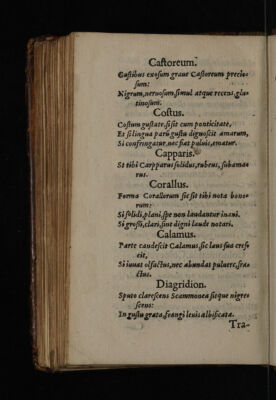 Castoreum.
Gustibus exosum graue Castoreum precio-
sum:
Nigrum, neruosum, simul atque recens, glu-
tinosum.
Costus.
Costum gustate, si sit cum ponticitate,
Et si lingua parū gustu dignoscit amarum,
Si confringatur, nec fiat puluis, ematur.
Capparis.
St tibi Carpparus solidus, rubeus, subama-
rus.
Corallus.
Forma Corallorum sic sit tibi nota bono-
rum:
Si solidi, plani, spe non laudantur inani.
Si grossi, clari, sunt digni laude notari.
Calamus.
Parte candescit Calamus, sic laus sua cres-
cit,
Si iuuat olfactus, nec abundat puluere, fra-
ctus.
Diagridion.
Sputo clarescens Scammonea sitque nigre-
scens:
In gustu grata, frangi leuis albificata.
Tra-